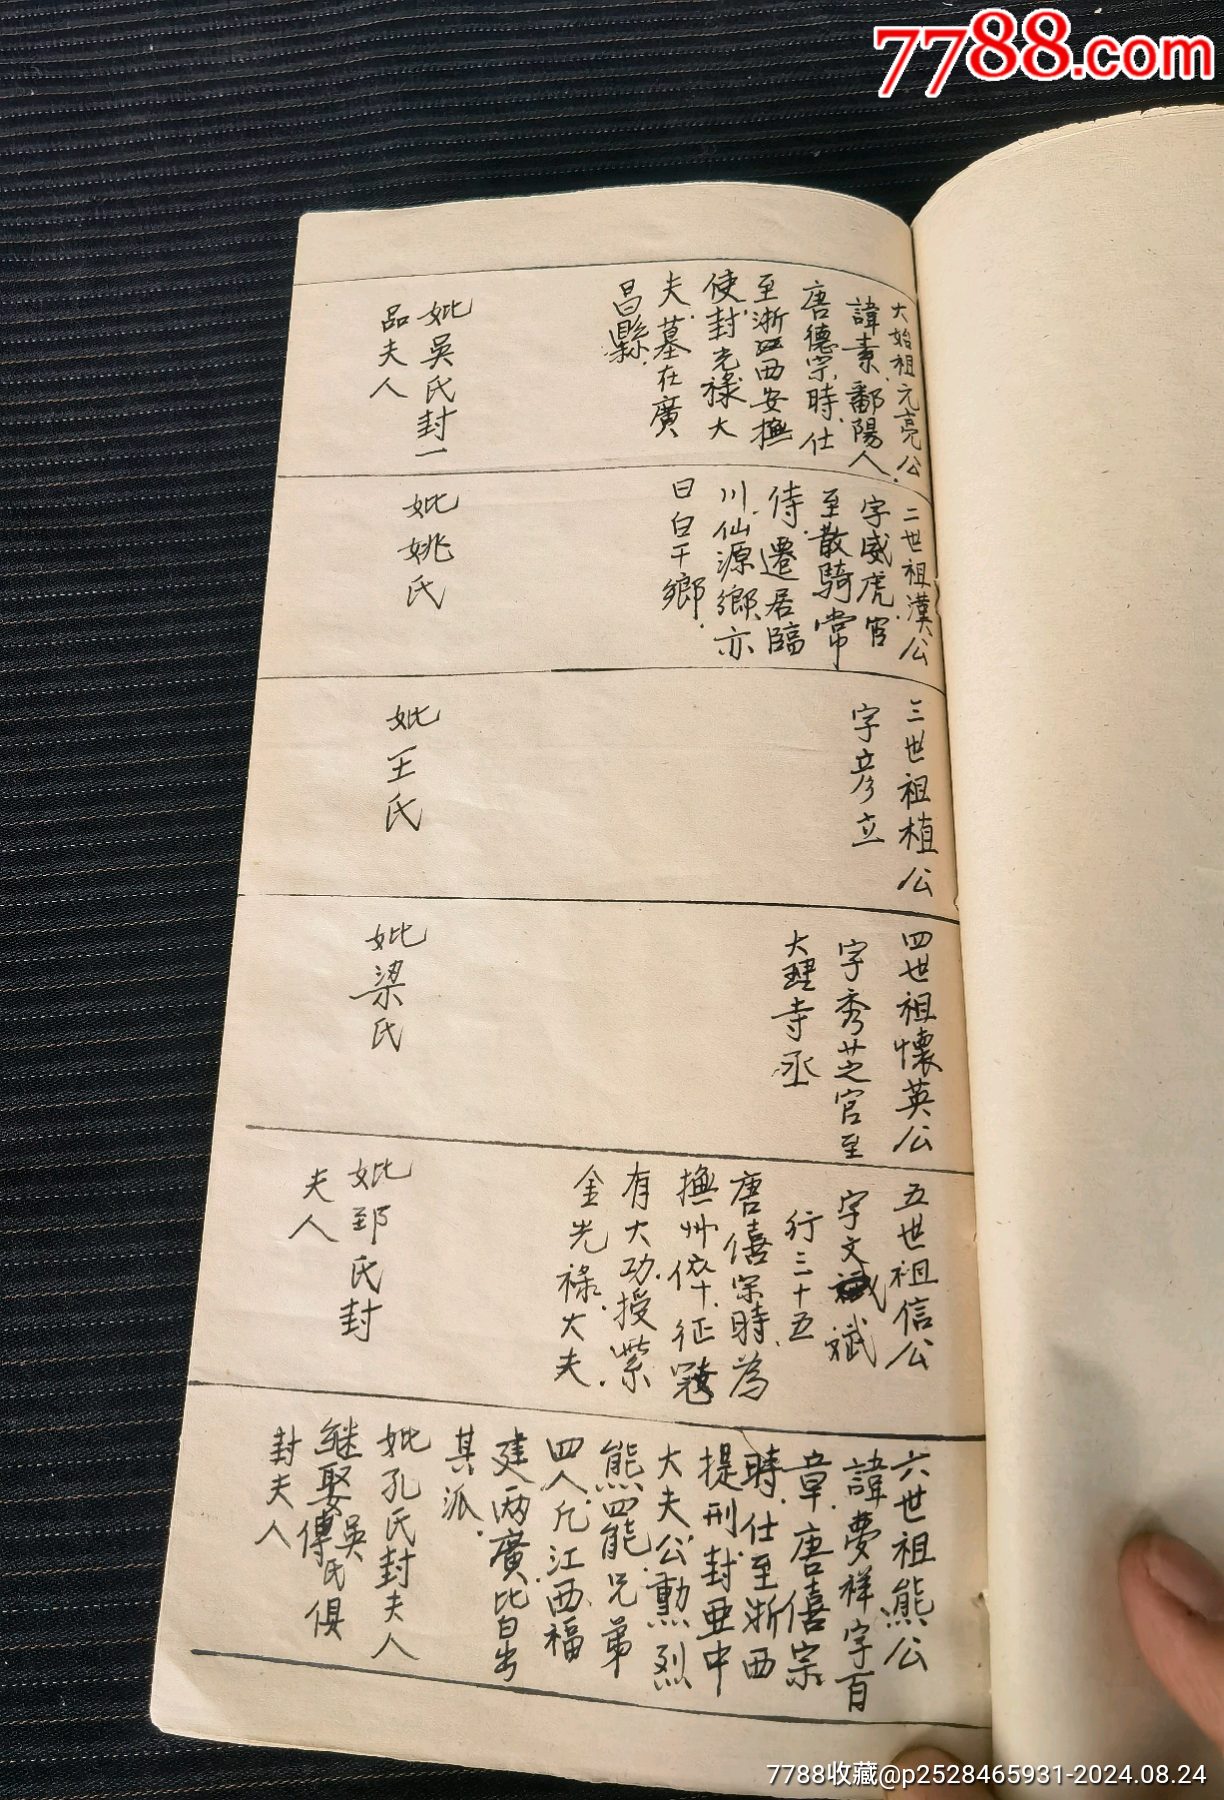 7788.com
大始祖元亮公
諱素鄱陽人
唐德宗時仕
至浙江西安撫
使封光祿大
夫墓在廣
昌縣
妣吳氏封一
品夫人
二世祖漢公
字威虎官
至散騎常
侍遷居臨
川仙源鄉亦
曰白干鄉
妣姚氏
三世祖植公
字彥立
妣王氏
四世祖懷英公
字秀芝官至
大理寺丞
妣梁氏
五世祖信公
字文斌
行三十五
唐僖宗時為
撫州倅征寇
有大功授紫
金光祿大夫
妣郅氏封
夫人
六世祖熊公
諱夢祥字百
章唐僖宗
時仕至浙西
提刑封亞中
大夫公勳烈
熊四能兄弟
四人凡江西福
建两廣比自出
其派
妣孔氏封夫人
継娶吳傅氏俱
封夫人
7788收藏@p2528465931-2024.08.24